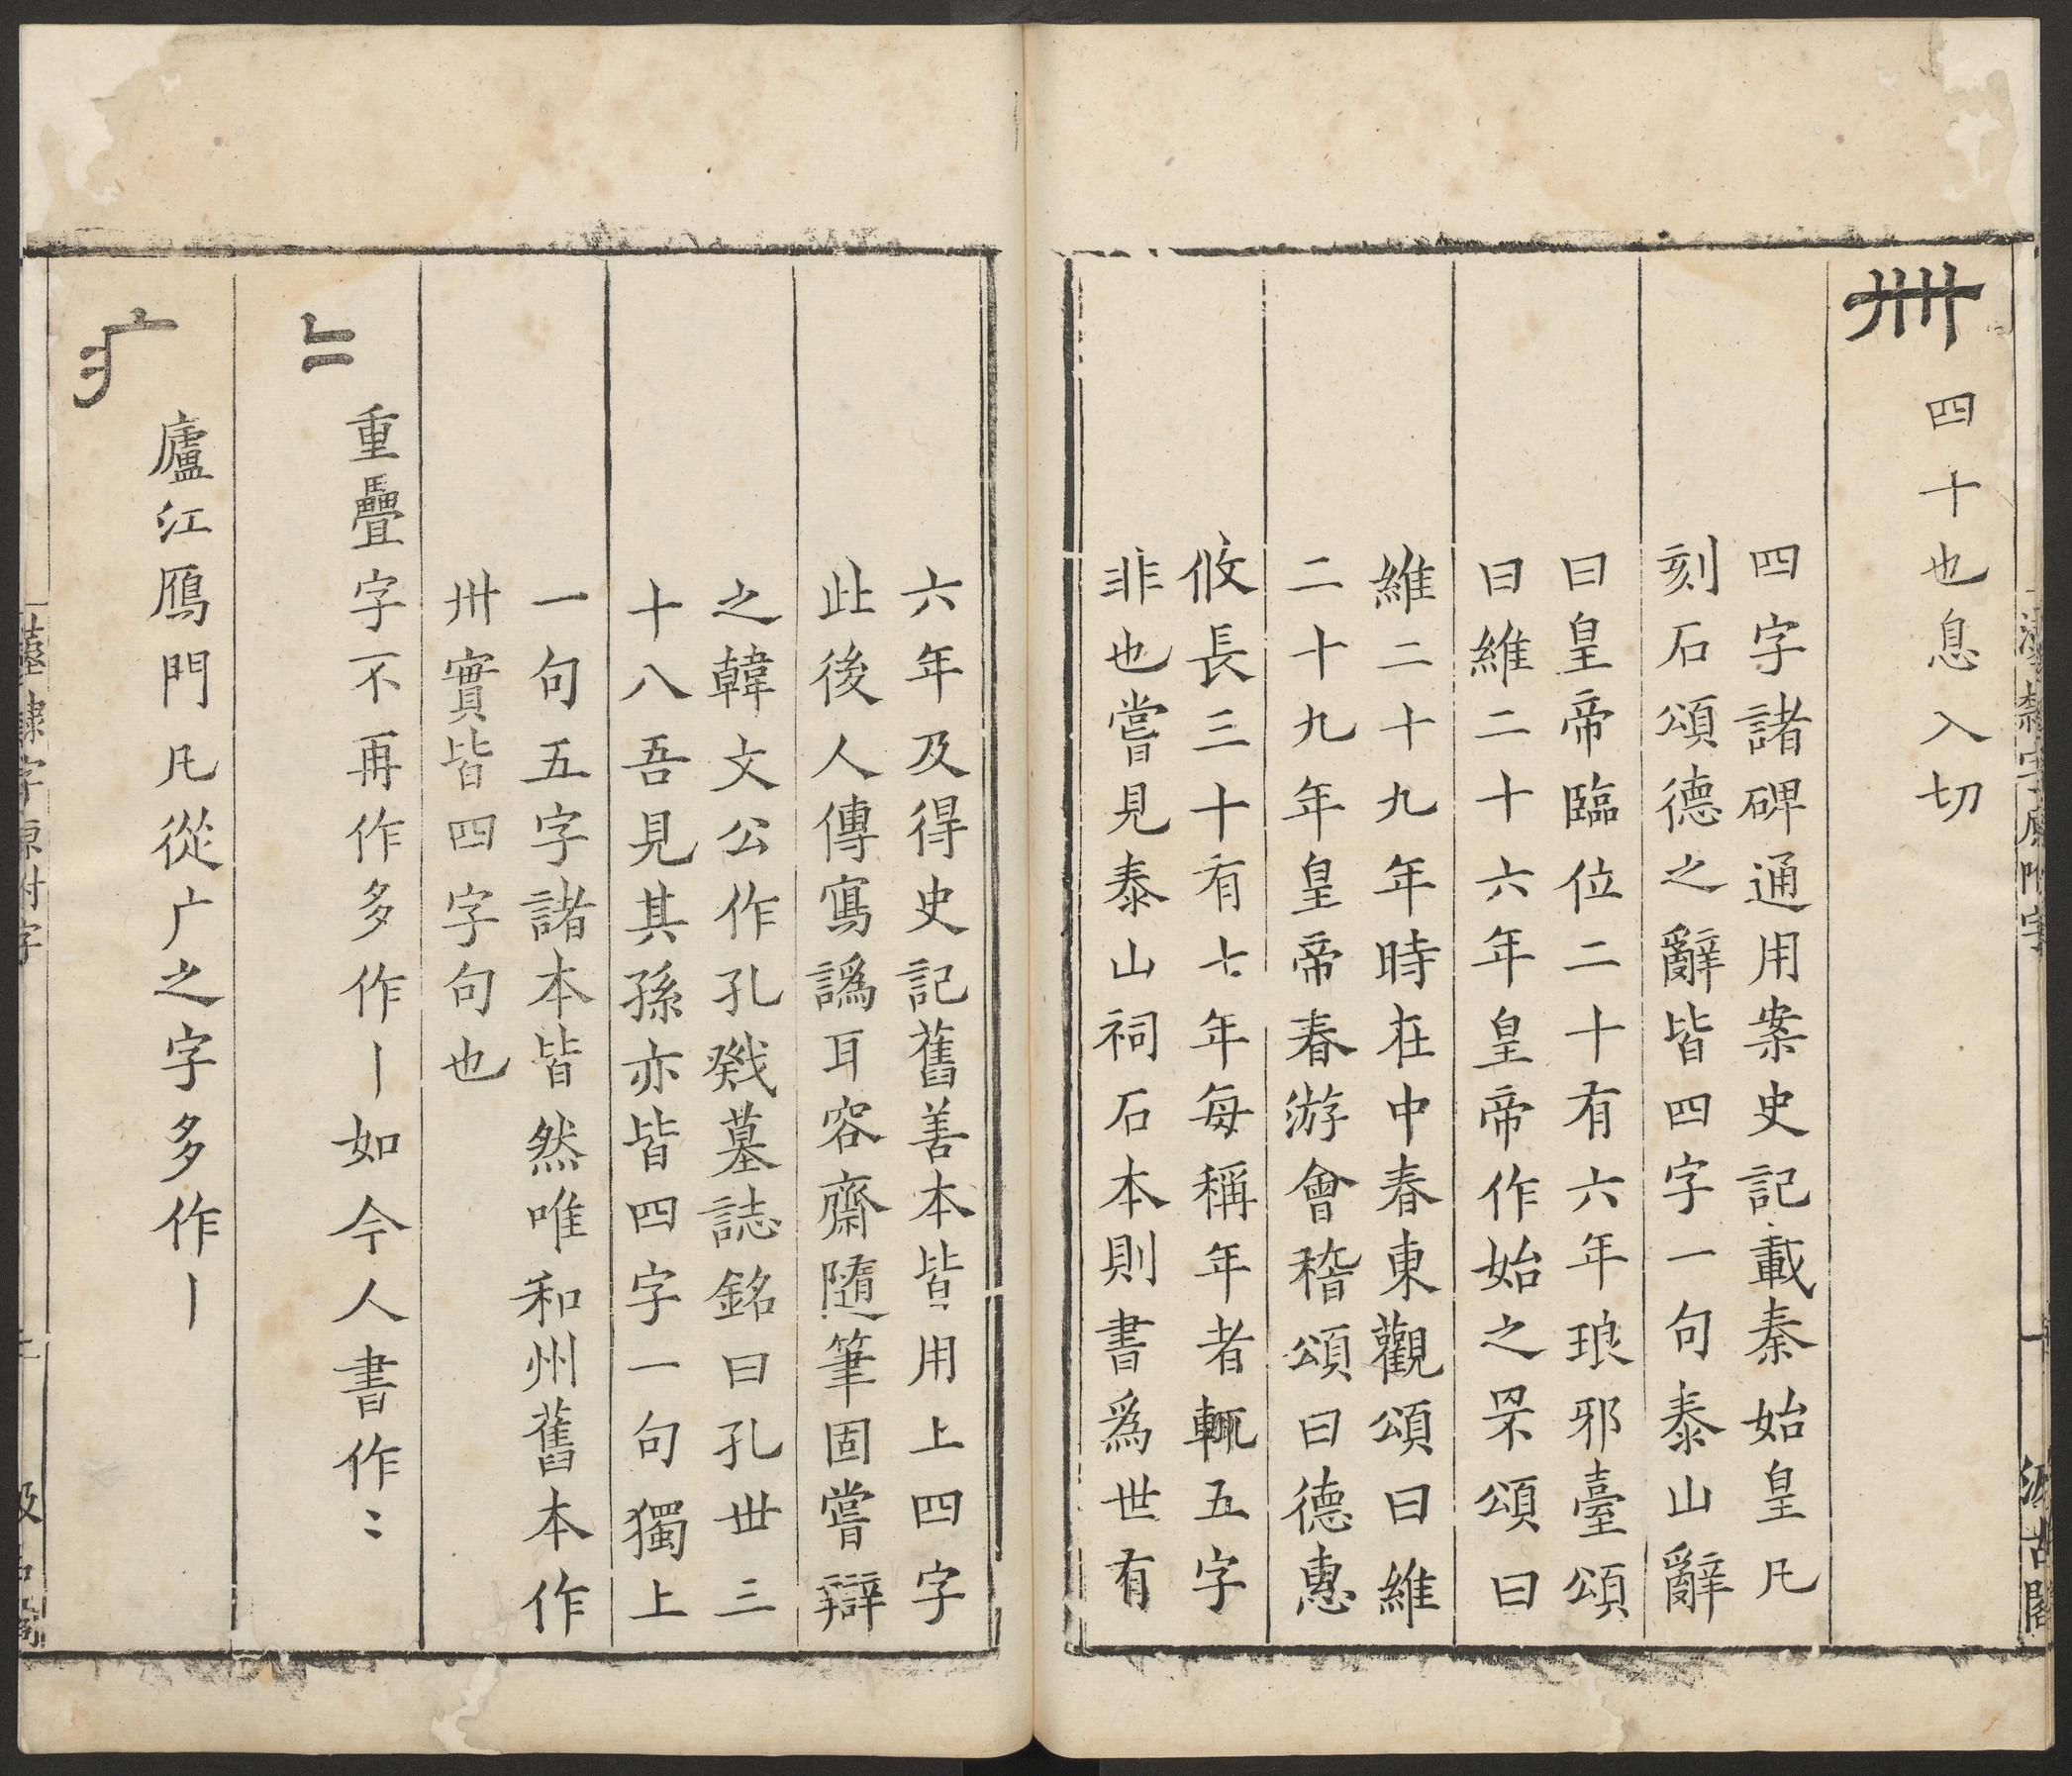 卌
四十也息入切
四字諸碑通用案史記載秦始皇凡
刻石頌德之辭皆四字一句泰山辭
曰皇帝臨位二十有六年琅邪臺頌
曰維二十六年皇帝作始之罘頌曰
維二十九年時在中春東觀頌曰維
二十九年皇帝春游會稽頌曰德惠
攸長三十有七年每稱年者輒五字
非也嘗見泰山祠石本則書爲世有
六年及得史記舊善本皆用上四字
此後人傳寫譌耳容齋隨筆固嘗辯
之韓文公作孔戣墓誌銘曰孔世三
十八吾見其孫亦皆四字一句獨上
一句五字諸本皆然唯和州舊本作
卅實皆四字句也
重疊字不再作多作丨如今人書作〻
廬江鴈門凡從广之字多作丨
漢隸字原附字
十
汲古閣